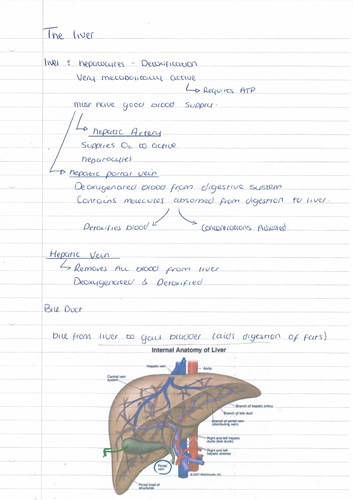 The liver
liver : hepatocytes - Detoxification
Very metabolically active
↳ Requires ATP
must have good blood supply.
↳ Hepatic Artery
Supplies O₂ to active
hepatocytes
↳ Hepatic portal vein
Deoxygenated blood from digestive system
Contains molecules absorbed from digestion to liver.
Detoxifies blood
Concentrations Adjusted
Hepatic Vein
↳ Removes ALL blood from liver
Deoxygenated & Detoxified
Bile Duct
bile from liver to gall bladder (aids digestion of fats)
Internal Anatomy of Liver
Hepatic vein
Aorta
Central vein
system
Branch of hepatic artery
Branch of bile duct
Branch of portal vein
(distributing vein)
Right and left hepatic
ducts (bile ducts)
Right and left hepatic
arteries
Portal
vein
Portal triad of
structures